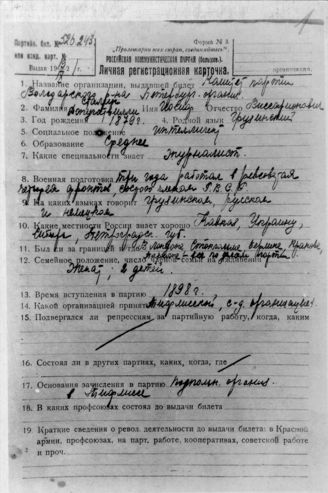 Форма № 3
Партийн. бил. №
или канд. карт. №
Выдан 192 г.
„Пролетарии всех стран, соединяйтесь“.
РОССИЙСКАЯ КОММУНИСТИЧЕСКАЯ ПАРТИЯ (большев.).
Личная регистрационная карточка.
организации.
1. Название организации, выдавшей билет Комитет партии
района Петербург. организ.
Сталин
2. Фамилия Имя Иосиф Отчество Виссарионович
3. Год рождения 1879 г. 4. Родной язык Грузинский
5. Социальное положение интеллигент
6. Образование Среднее
7. Какие специальности знает журналист.
8. Военная подготовка Три года работал в реввоенсовет
фронтов, состоя членом Р.В.С.Р.
9. На каких языках говорит грузинском, русском
и немецком
10. Какие местности России знает хорошо Кавказ, Украину,
Сибирь, Петроград. губ.
11. Был ли за границей Лондоне, Стокгольме, Берлине, Кракове,
все по делам партии
12. Семейное положение, число членов семьи на иждивении
Женат, 2 детей.
13. Время вступления в партию 1898 г.
14. Какой организацией принят Тифлисской, с.-д. организацией.
15. Подвергался ли репрессиям за партийную работу, когда, каким
16. Состоял ли в других партиях, каких, когда, где
17. Основания зачисления в партию подпольн. организ.
в Тифлисе
18. В каких профсоюзах состоял до выдачи билета
19. Краткие сведения о револ. деятельности до выдачи билета: в Красной
армии, профсоюзах, на парт. работе, кооперативах, советской работе
и проч.